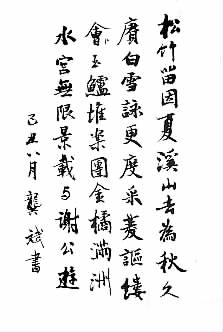 松竹留因夏溪山去為秋久
賡白雪詠更度采菱謳縷
會玉鱸堆案團金橘滿洲
水宮無限景載与謝公遊
己丑八月 龔斌書